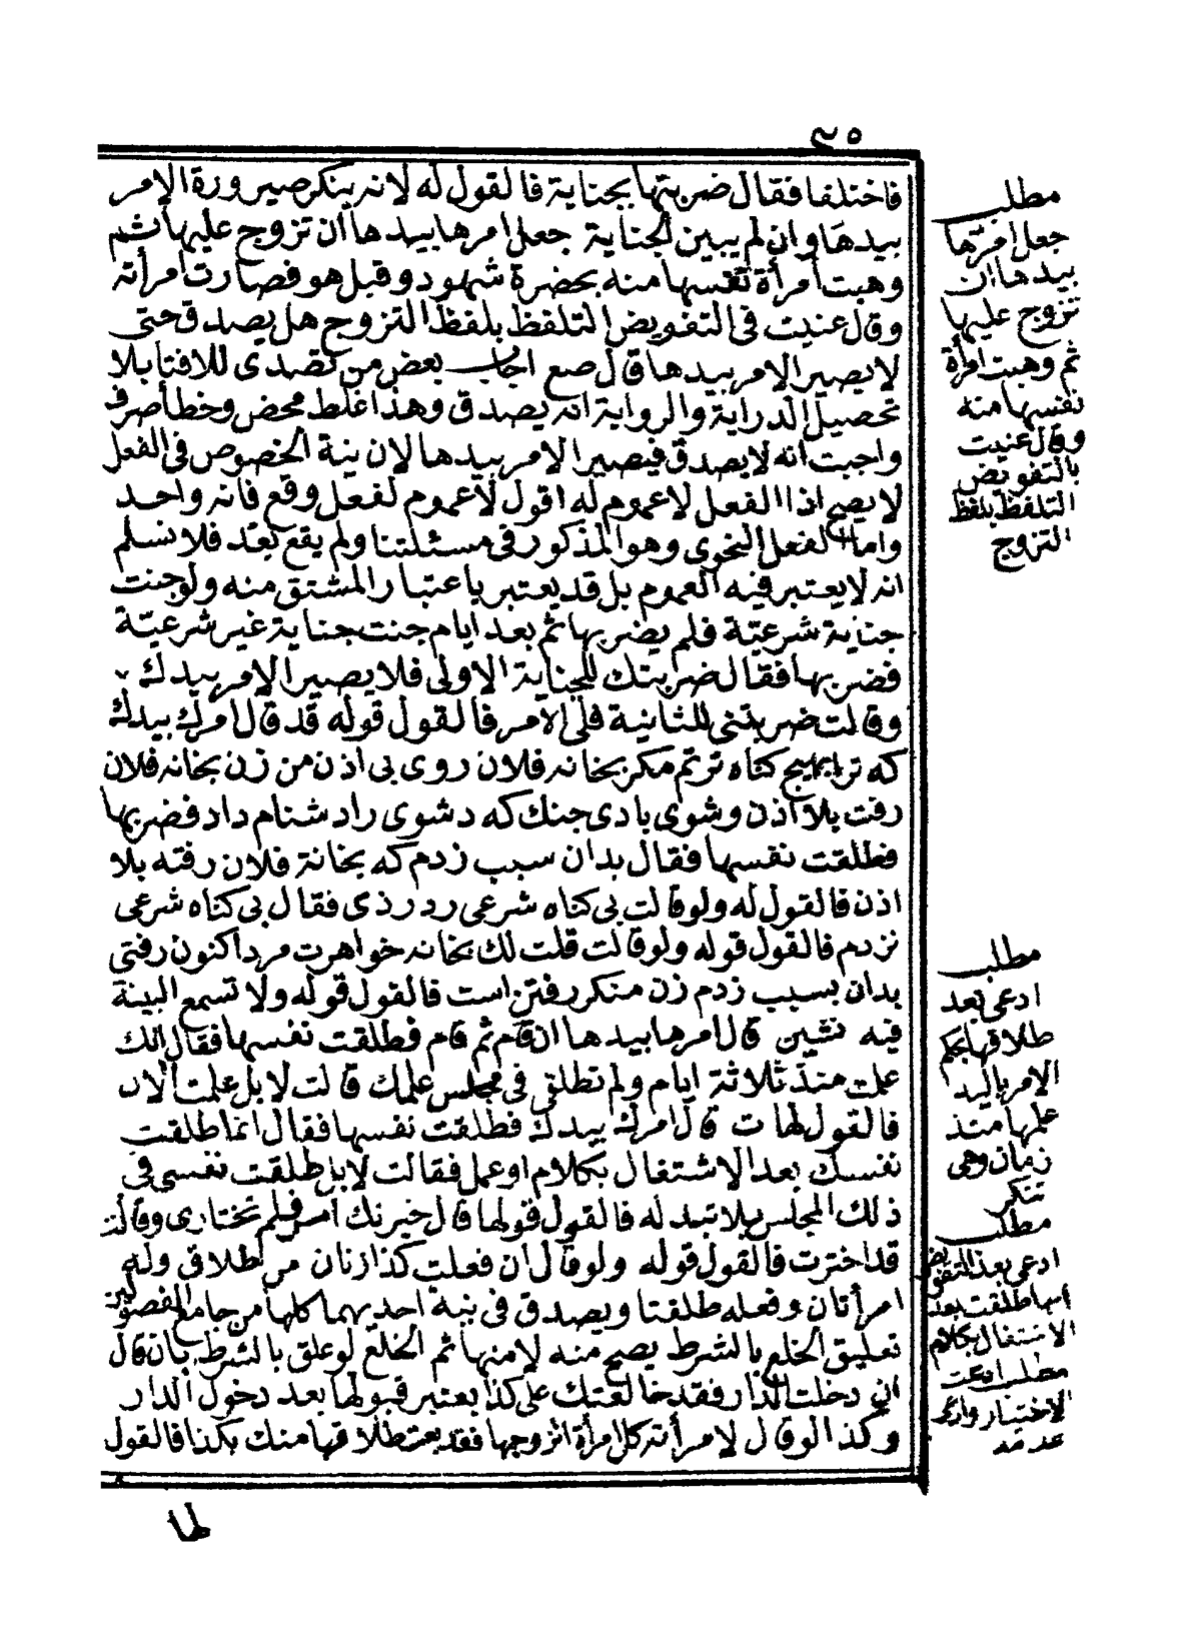 ٢٥
فاختلفا فقال ضربتها بجناية فالقول له لانه ينكر صيرورة الامر
بيدها وان لم يبين الجناية جعل امرها بيدها ان تزوج عليها ثم
وهبت امرأة نفسها منه بحضرة شهود وقبل هو فصارت امرأته
وقال عنيت فى التفويض التلفظ بلفظ التزوج هل يصدق حتى
لا يصير الامر بيدها قال صع اجاب بعض من تصدى للافتا بلا
تحصيل الدراية والرواية انه يصدق وهذا غلط محض وخطأ صرف
واجبت انه لا يصدق فيصير الامر بيدها لان نية الخصوص فى الفعل
لا يصح اذ الفعل لا عموم له اقول لا عموم لفعل وقع فانه واحد
واما الفعل النحوى وهو المذكور فى مسئلتنا ولم يقع بعد فلا نسلم
انه لا يعتبر فيه العموم بل قد يعتبر باعتبار المشتق منه ولو جنت
جناية شرعية فلم يضربها ثم بعد ايام جنت جناية غير شرعية
فضربها فقال ضربتك للجناية الاولى فلا يصير الامر بيدك
وقالت ضربتنى للثانية فلى الامر فالقول قوله قد قال امرك بيدك
كه ترا بهيچ كناه نزنم مكر بخانه فلان روى بى اذن من زن بخانه فلان
رفت بلا اذن وشوى بادى جنك كه دشوى را دشنام داد فضربها
فطلقت نفسها فقال بدان سبب زدم كه بخانة فلان رفته بلا
اذن فالقول له ولو قالت بى كناه شرعى زدى فقال بى كناه شرعى
نزدم فالقول قوله ولو قالت قلت لك بخانه خواهرت مرد اكنون رفتى
بدان بسبب زدم زن منكر رفتن است فالقول قوله ولا تسمع البينة
فيه نشين قال امرها بيدها ان قام ثم قام فطلقت نفسها فقال انك
علمت منذ ثلاثة ايام ولم تطلقى فى مجلس علمك قالت لا بل علمت الان
فالقول لها ت قال امرك بيدك فطلقت نفسها فقال انما طلقت
نفسك بعد الاشتغال بكلام او عمل فقالت لا بل طلقت نفسى فى
ذلك المجلس بلا تبدله فالقول قولها قال خيرتك امس فلم تختارى وقالت
قد اخترت فالقول قوله ولو قال ان فعلت كذا زنان من طلاق وله
امرأتان وفعله طلقتا ويصدق فى نية احديهما كلها من جامع الفصولين
تعليق الخلع بالشرط يصح منه لا منها ثم الخلع لو علق بالشرط بان قال
ان دخلت الدار فقد خالعتك على كذا يعتبر قبولها بعد دخول الدار
وكذا لو قال لامرأته كل امرأة اتزوجها فقد بعت طلاقها منك بكذا فالقول
لها
مطلب
جعل امرها
بيدها ان
تزوج عليها
ثم وهبت امرأة
نفسها منه
وقال عنيت
بالتفويض
التلفظ بلفظ
التزوج
مطلب
ادعى بعد
طلاقها بحكم
الامر باليد
علمها منذ
زمان وهى
تنكر
مطلب
ادعى بعد التفويض
انها طلقت بعد
الاشتغال بكلام
مطلب ادعت
الاختيار وانكر